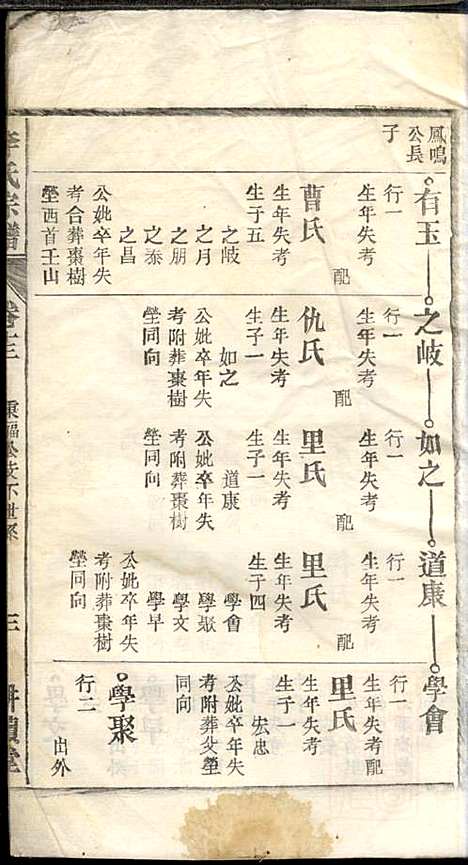 鳳鳴
公長
子
有玉
行一
生年失考
配
曹氏
生年失考
生子五
之岐
之月
之朋
之泰
之昌
公妣卒年失
考合葬棗樹
塋西首壬山
之歧
行一
生年失考
配
仇氏
生年失考
生子一
如之
公妣卒年失
考附葬棗樹
塋同向
如之
行一
生年失考
配
里氏
生年失考
生子一
道康
公妣卒年失
考附葬棗樹
塋同向
道康
行一
生年失考
配
里氏
生年失考
生子四
學會
學聚
學文
學早
公妣卒年失
考附葬棗樹
塋同向
學會
行一
生年失考配
里氏
生年失考
生子一
宏忠
公妣卒年失
考附葬父塋
同向
學聚
行二
出外
李氏宗譜
卷三
公支下世系
三